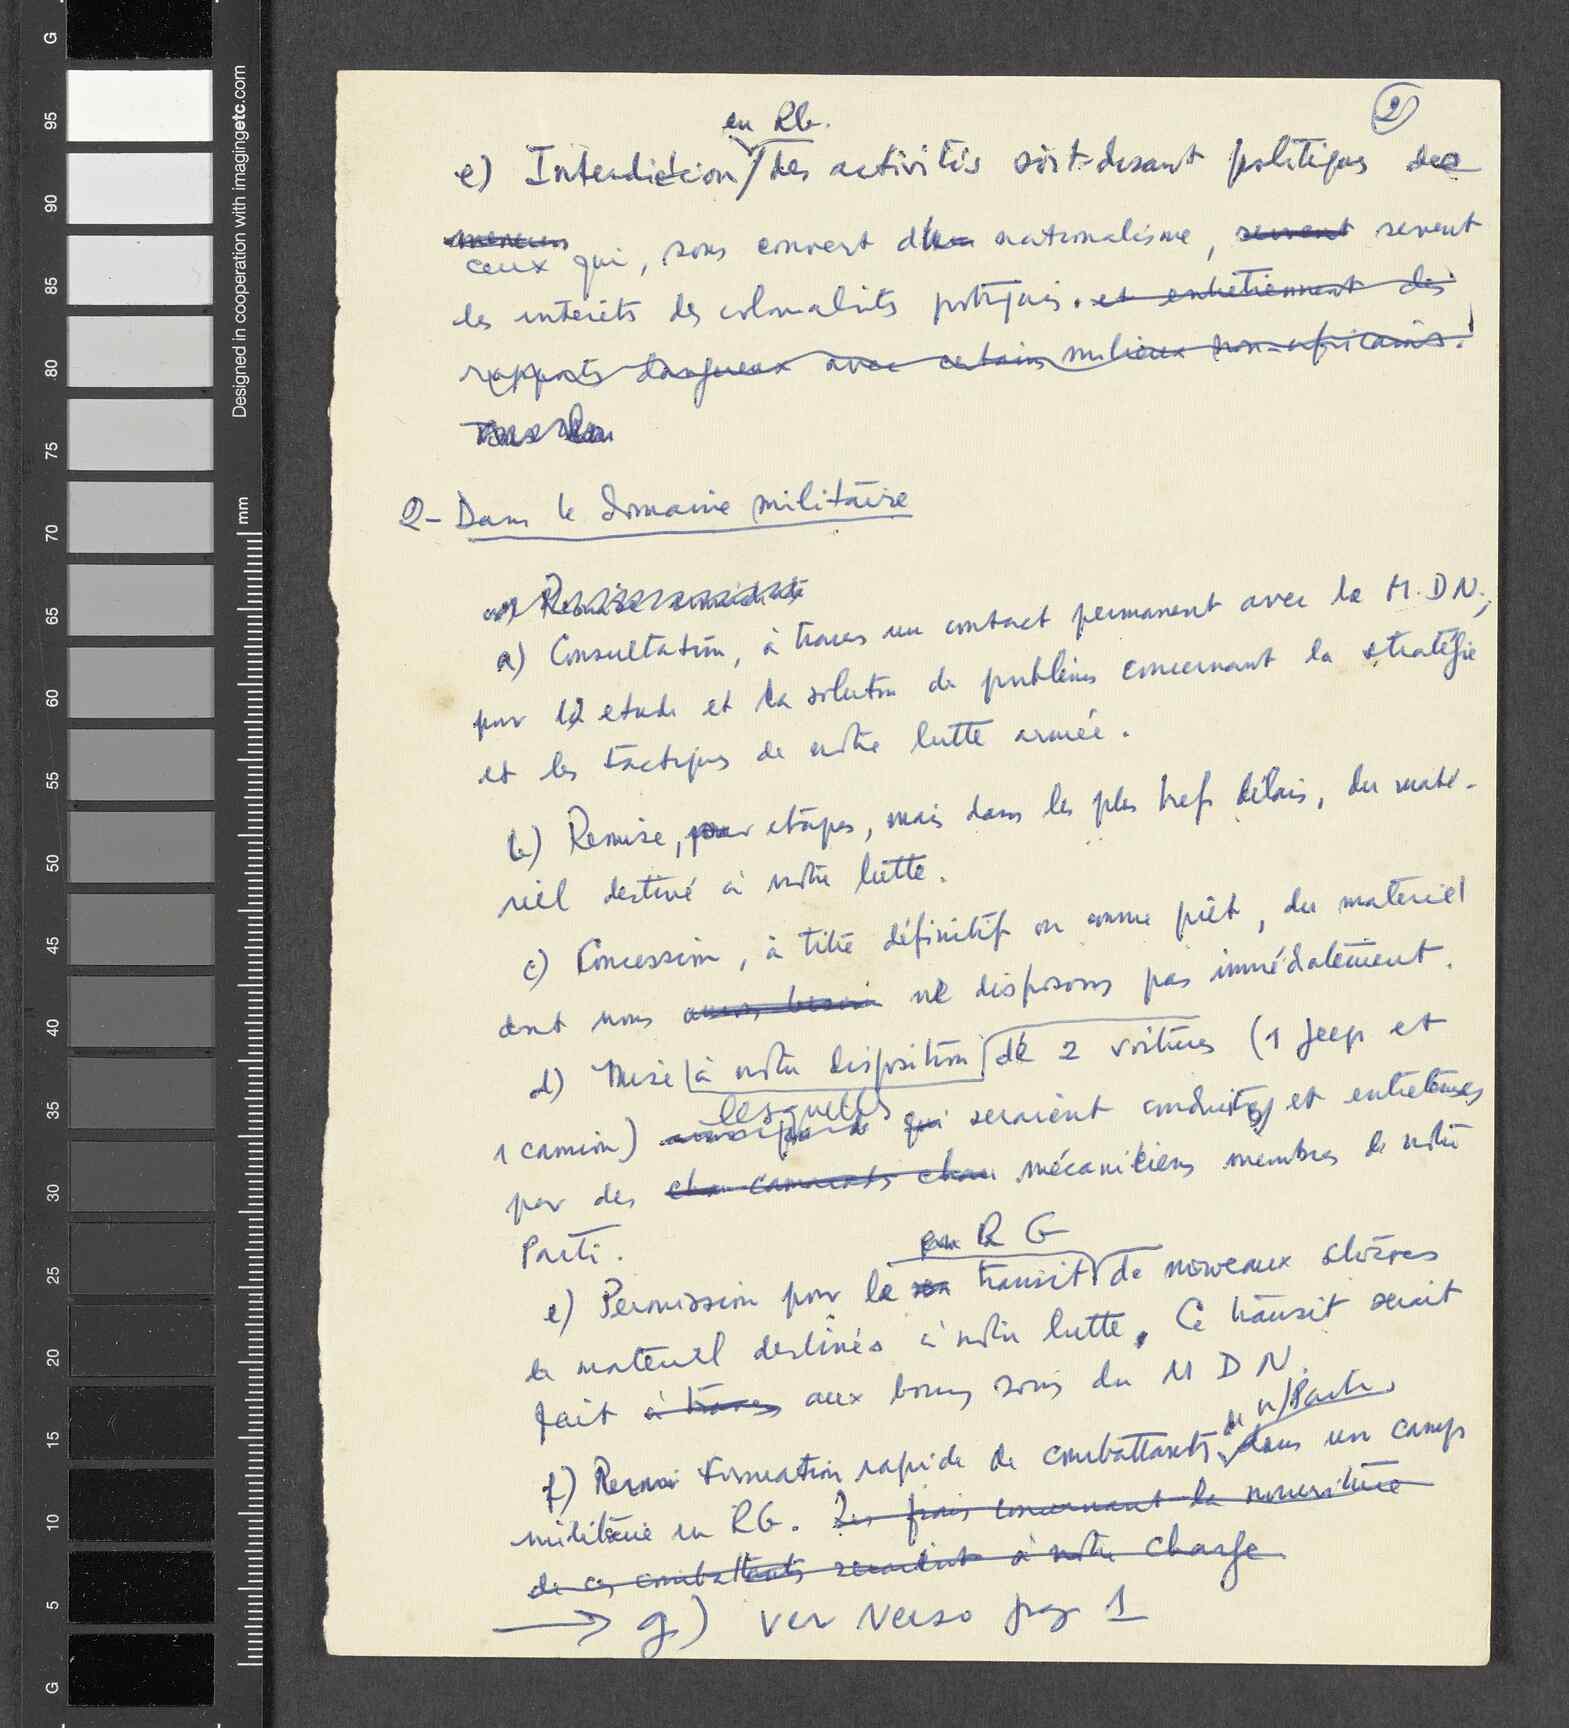 G
95
90
85
80
75
70
65
60
55
50
45
40
35
30
25
20
15
10
5
G
Designed in cooperation with imagingetc.com
mm
2
en RG.
e) Interdiction des activités soit-disant politiques des
meneurs
ceux qui, sous couvert d'un nationalisme, servent servent
les intérêts des colonialistes portugais. et entretiennent des
rapports dangereux avec certains milieux non-africains.
2- Dans le domaine militaire
a) Consultation, à travers un contact permanent avec le M.D.N.,
pour l'étude et la solution de problèmes concernant la stratégie
et les tactiques de notre lutte armée.
b) Remise, par étapes, mais dans les plus brefs délais, du maté-
riel destiné à notre lutte.
c) Concession, à titre définitif ou comme prêt, du matériel
dont nous avons besoin ne disposons pas immédiatement.
d) Mise à notre disposition de 2 voitures (1 jeep et
lesquelles
1 camion) qui seraient conduites et entretenues
par des camarades mécaniciens membres de notre
Parti.
en R G
e) Permission pour le transit de nouveaux
de matériel destinés à notre lutte. Ce transit serait
fait à travers aux bons soins du M D N.
de n/Parti
f) Formation rapide de combattants dans un camp
militaire en RG. Les frais concernant la nourriture
de ces combattants seraient à notre charge
→ g) ver verso pag 1